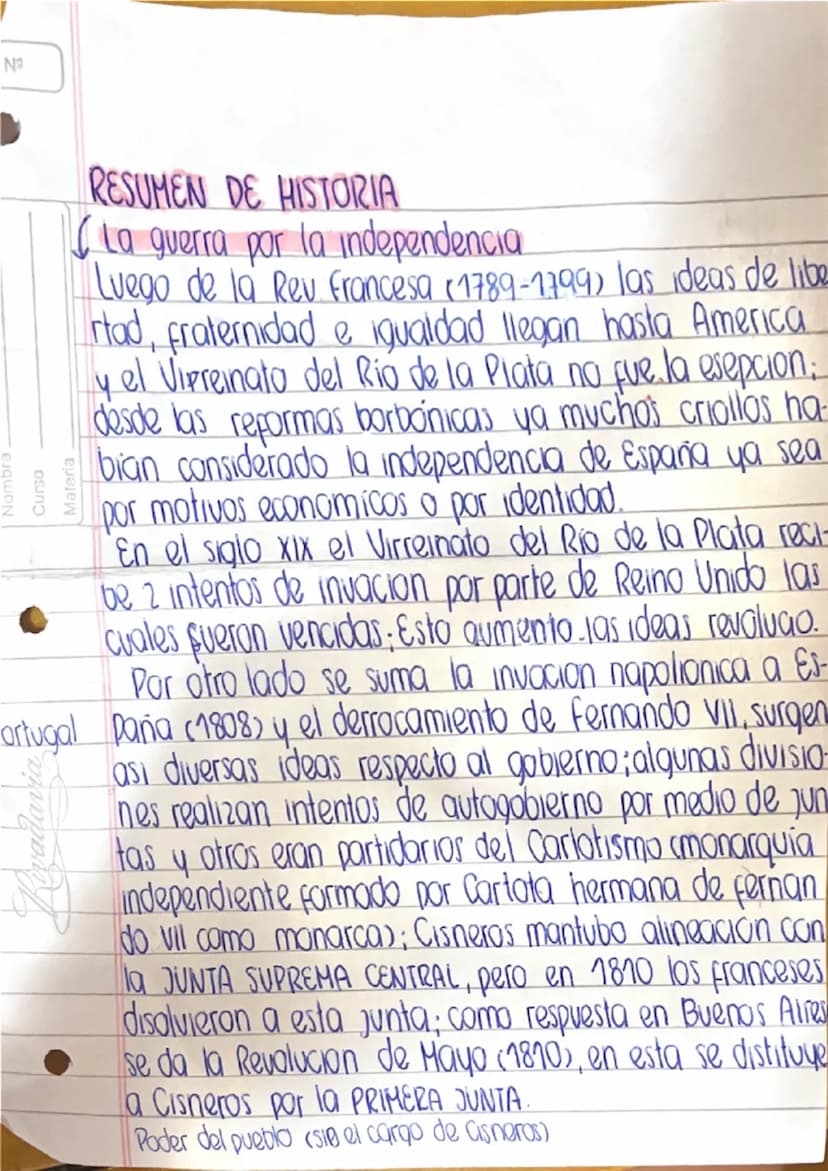 Nº
RESUMEN DE HISTORIA
La guerra por la independencia
Luego de la Rev. Francesa (1789-1799) las ideas de libe
rtad, fraternidad e igualdad llegan hasta America
y el Virreinato del Río de la Plata no fue la esepcion;
desde las reformas borbónicas ya muchos criollos ha-
bian considerado la independencia de España ya sea
por motivos economicos o por identidad.
En el siglo XIX el Virreinato del Río de la Plata reci-
be 2 intentos de invacion por parte de Reino Unido las
cuales fueron vencidas; Esto aumento las ideas revoluao.
Por otro lado se suma la invacion napolionica a Es-
ortugal paña (1808) y el derrocamiento de Fernando VII, surgen
asi diversas ideas respecto al gobierno; algunas divisio-
nes realizan intentos de autogobierno por medio de jun
tas y otros eran partidarios del Carlotismo (monarquía
independiente formado por Carlota hermana de fernan
do VII como monarca); Cisneros mantubo alineación con
la JUNTA SUPREMA CENTRAL, pero en 1810 los franceses
disolvieron a esta junta; como respuesta en Buenos Aires
se da la Revolucion de Mayo (1810), en esta se distituye
a Cisneros por la PRIMERA JUNTA.
Poder del pueblo (sin el cargo de Cisneros)
Nombre
Curso
Materia
Rivadavia